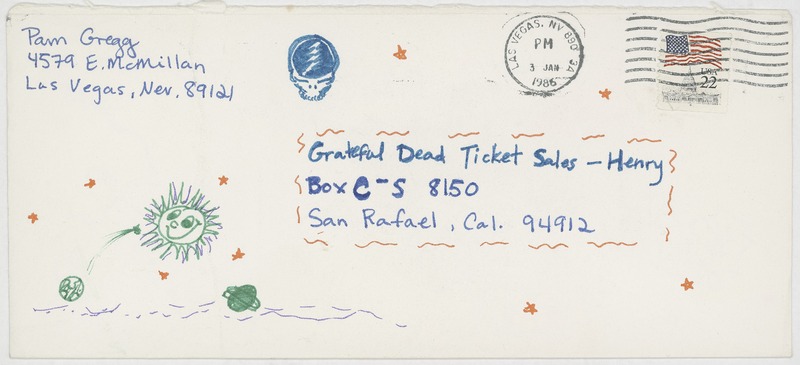 Pam Gregg
4579 E. McMillan
Las Vegas, Nev. 89121
LAS VEGAS, NV 890
PM
3 JAN
1986
USA
22
Grateful Dead Ticket Sales - Henry
Box C-S 8150
San Rafael, Cal. 94912